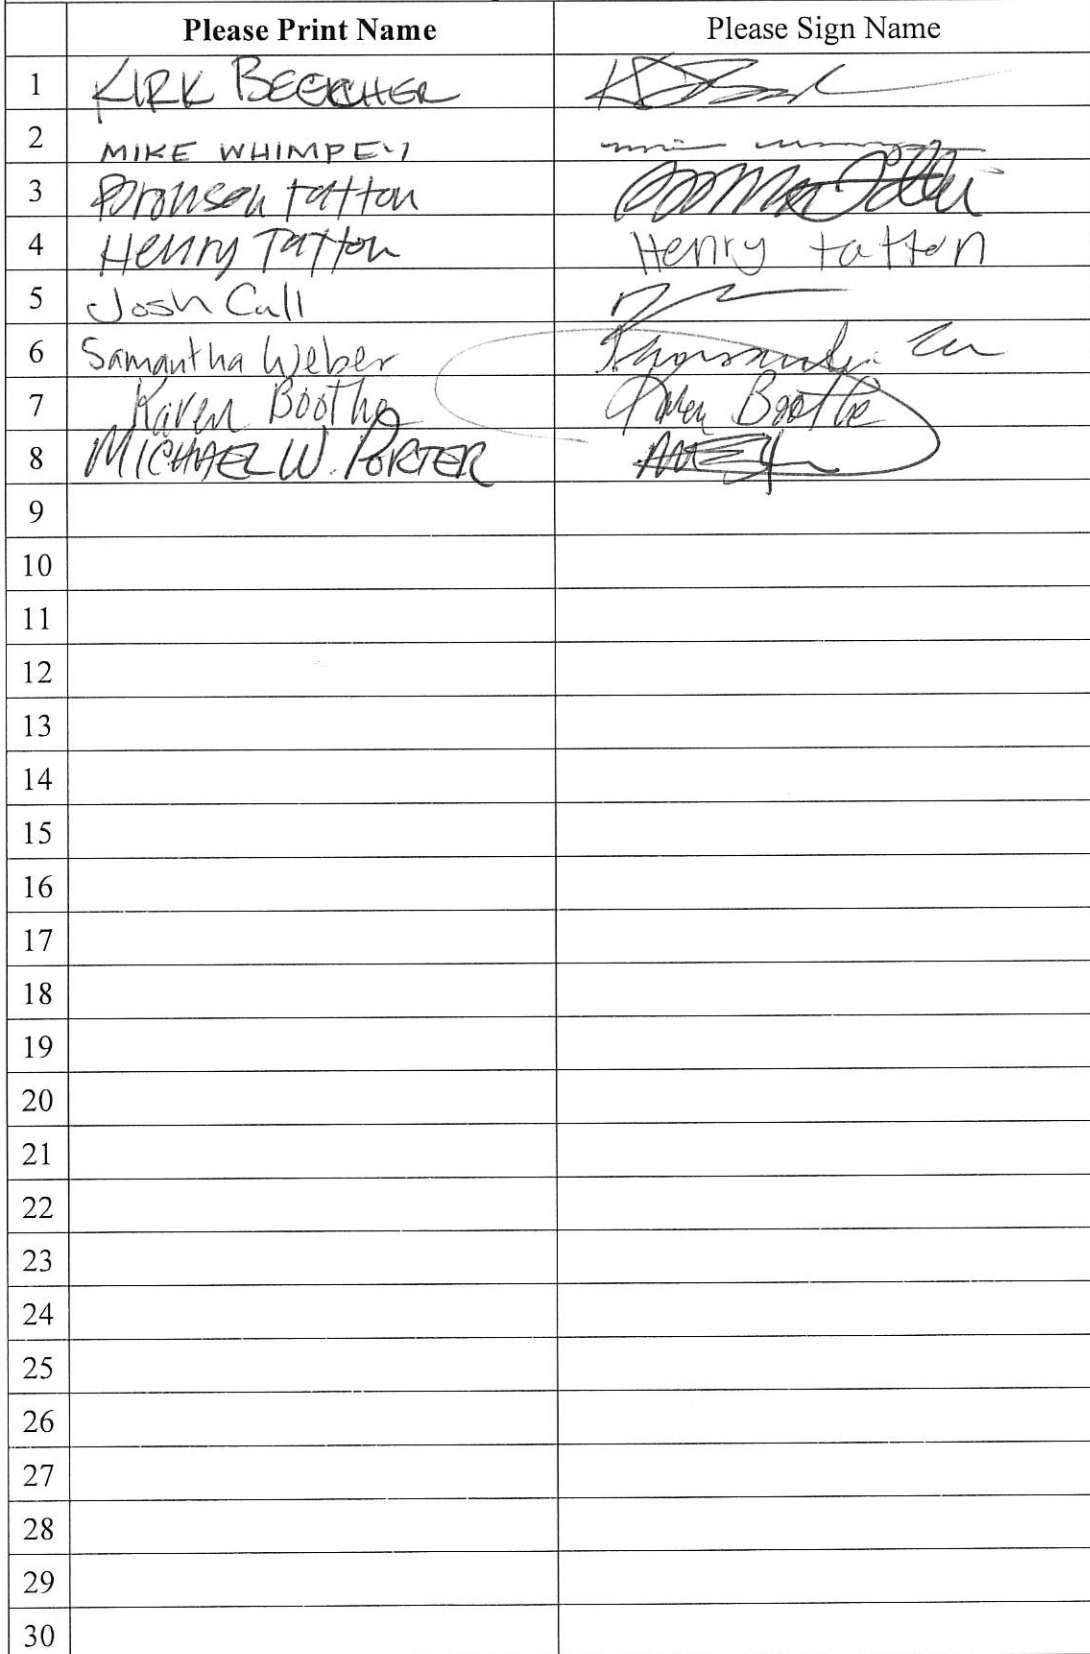 Please Print Name Please Sign Name
1 KIRK BEECHER
2 MIKE WHIMPEY
3 Bronson tatton
4 Henry Tatton Henry tatton
5 Josh Call
6 Samantha Weber
7 Karen Boothe Karen Boothe
8 MICHAEL W. PORTER
9
10
11
12
13
14
15
16
17
18
19
20
21
22
23
24
25
26
27
28
29
30